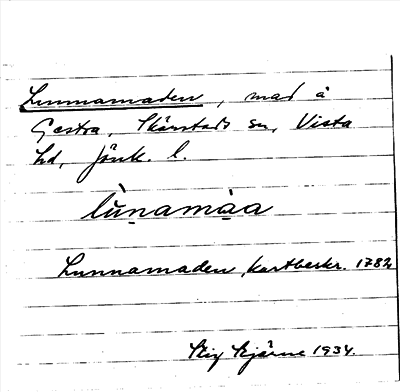 Lunnamaden, mad å
Gestra, Skärstads sn, Vista
hd, Jönk. l.
lùṇamàa
Lunnamaden, kartbeskr. 1782
Stig Bjärne 1934.